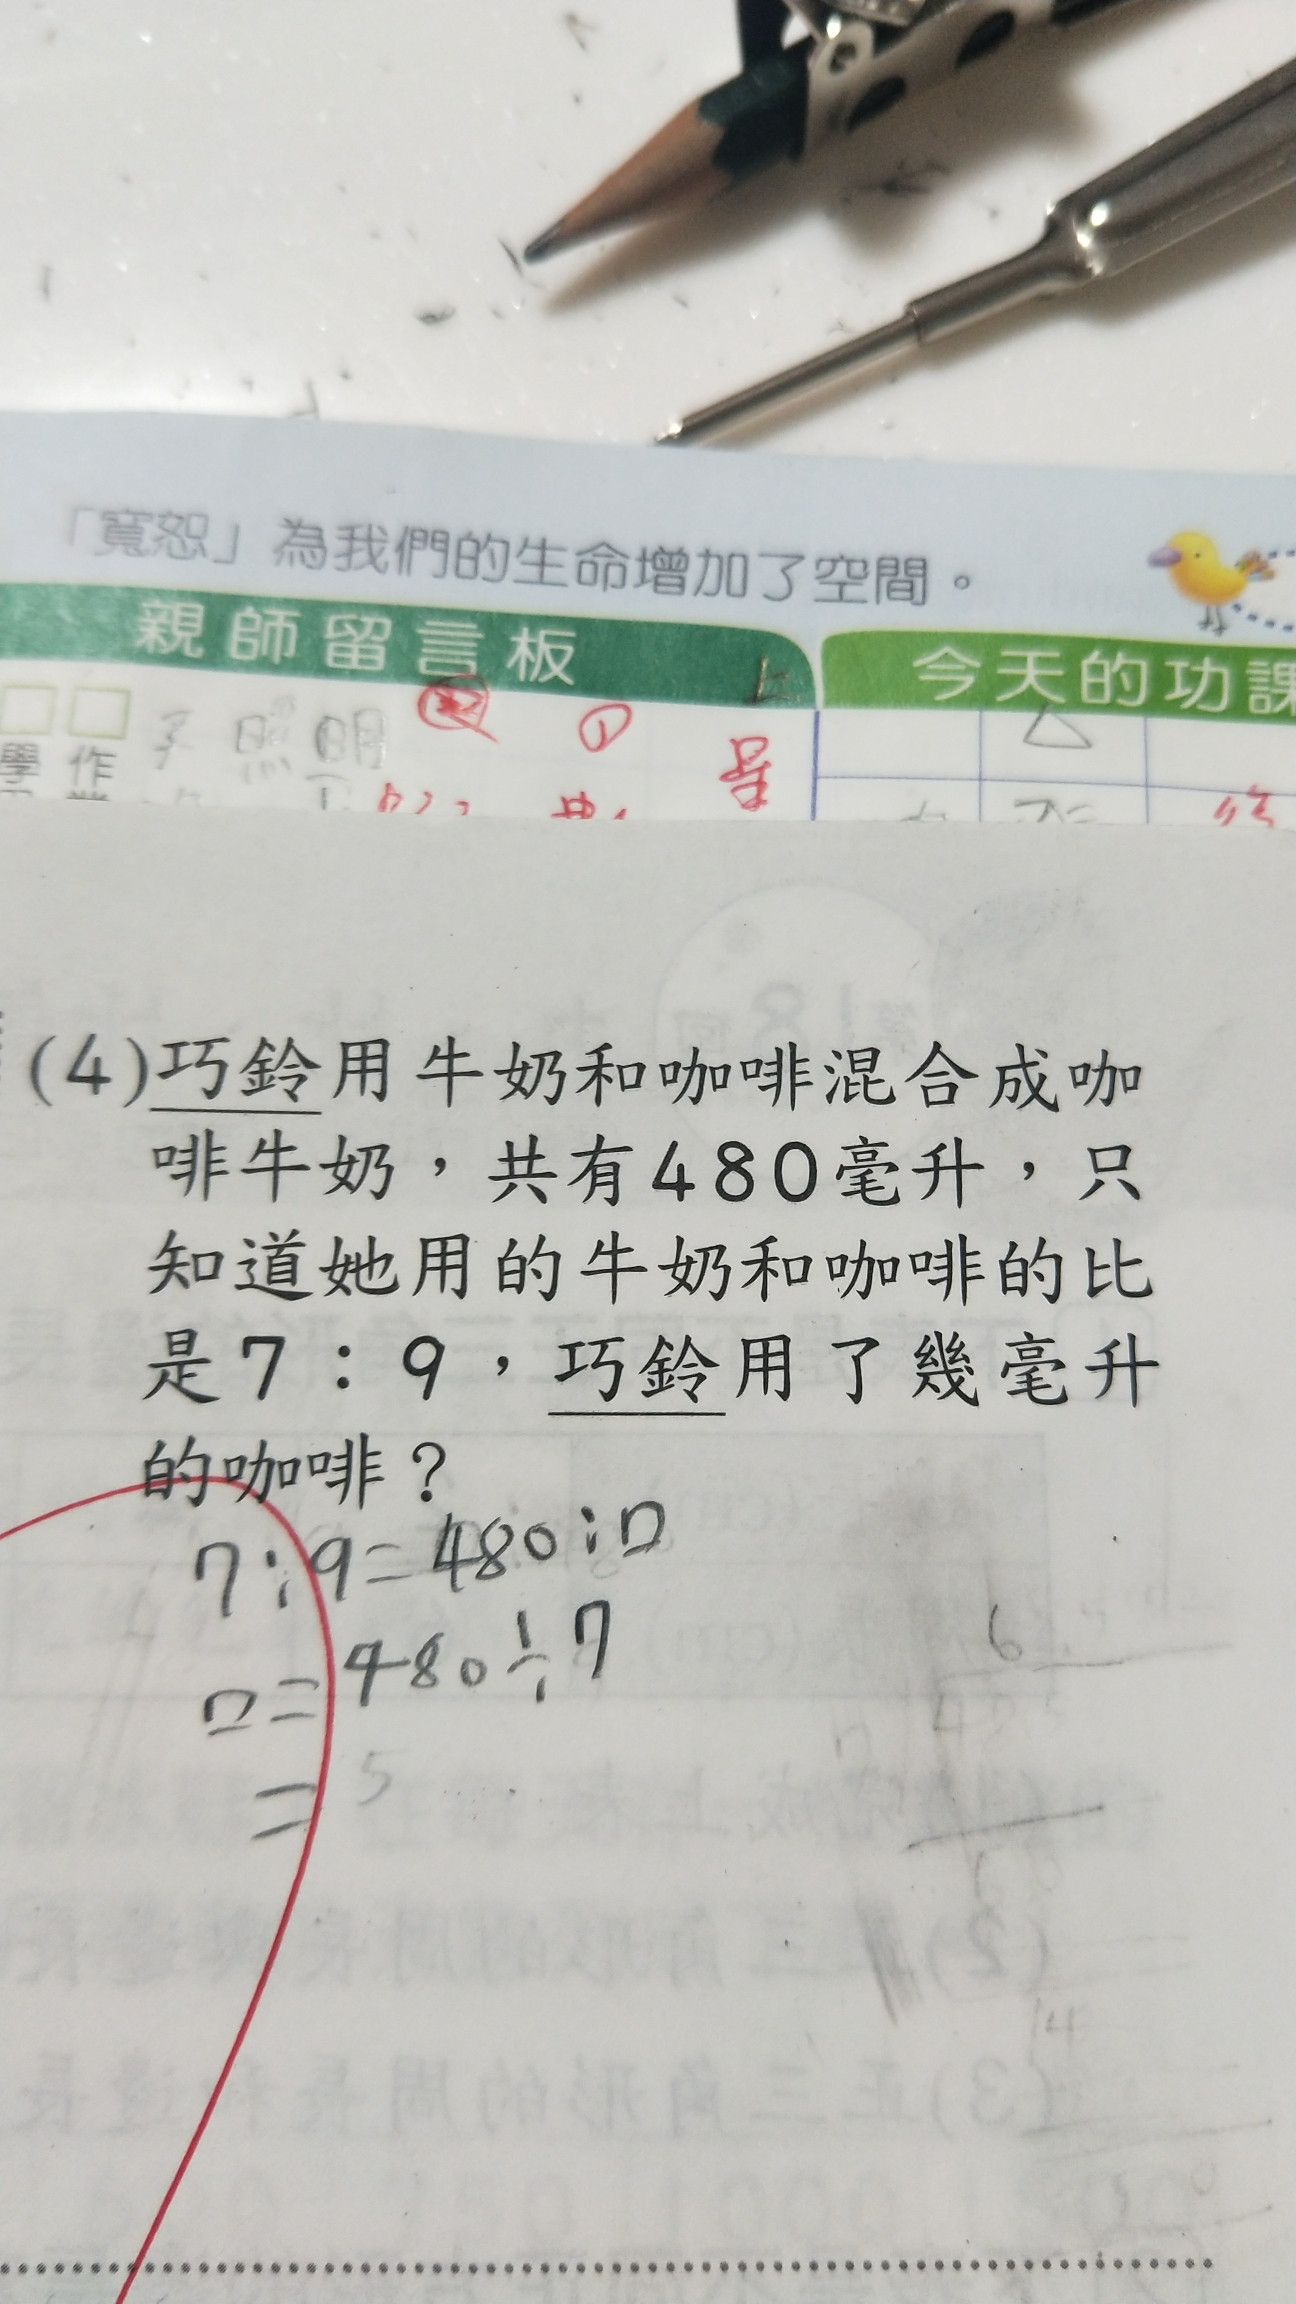 「寬恕」為我們的生命增加了空間。
親師留言板
今天的功課
學 作 照明 ①
(4)巧鈴用牛奶和咖啡混合成咖
啡牛奶，共有480毫升，只
知道她用的牛奶和咖啡的比
是7：9，巧鈴用了幾毫升
的咖啡？
7:9=480:□
□=480÷7
= 5
6